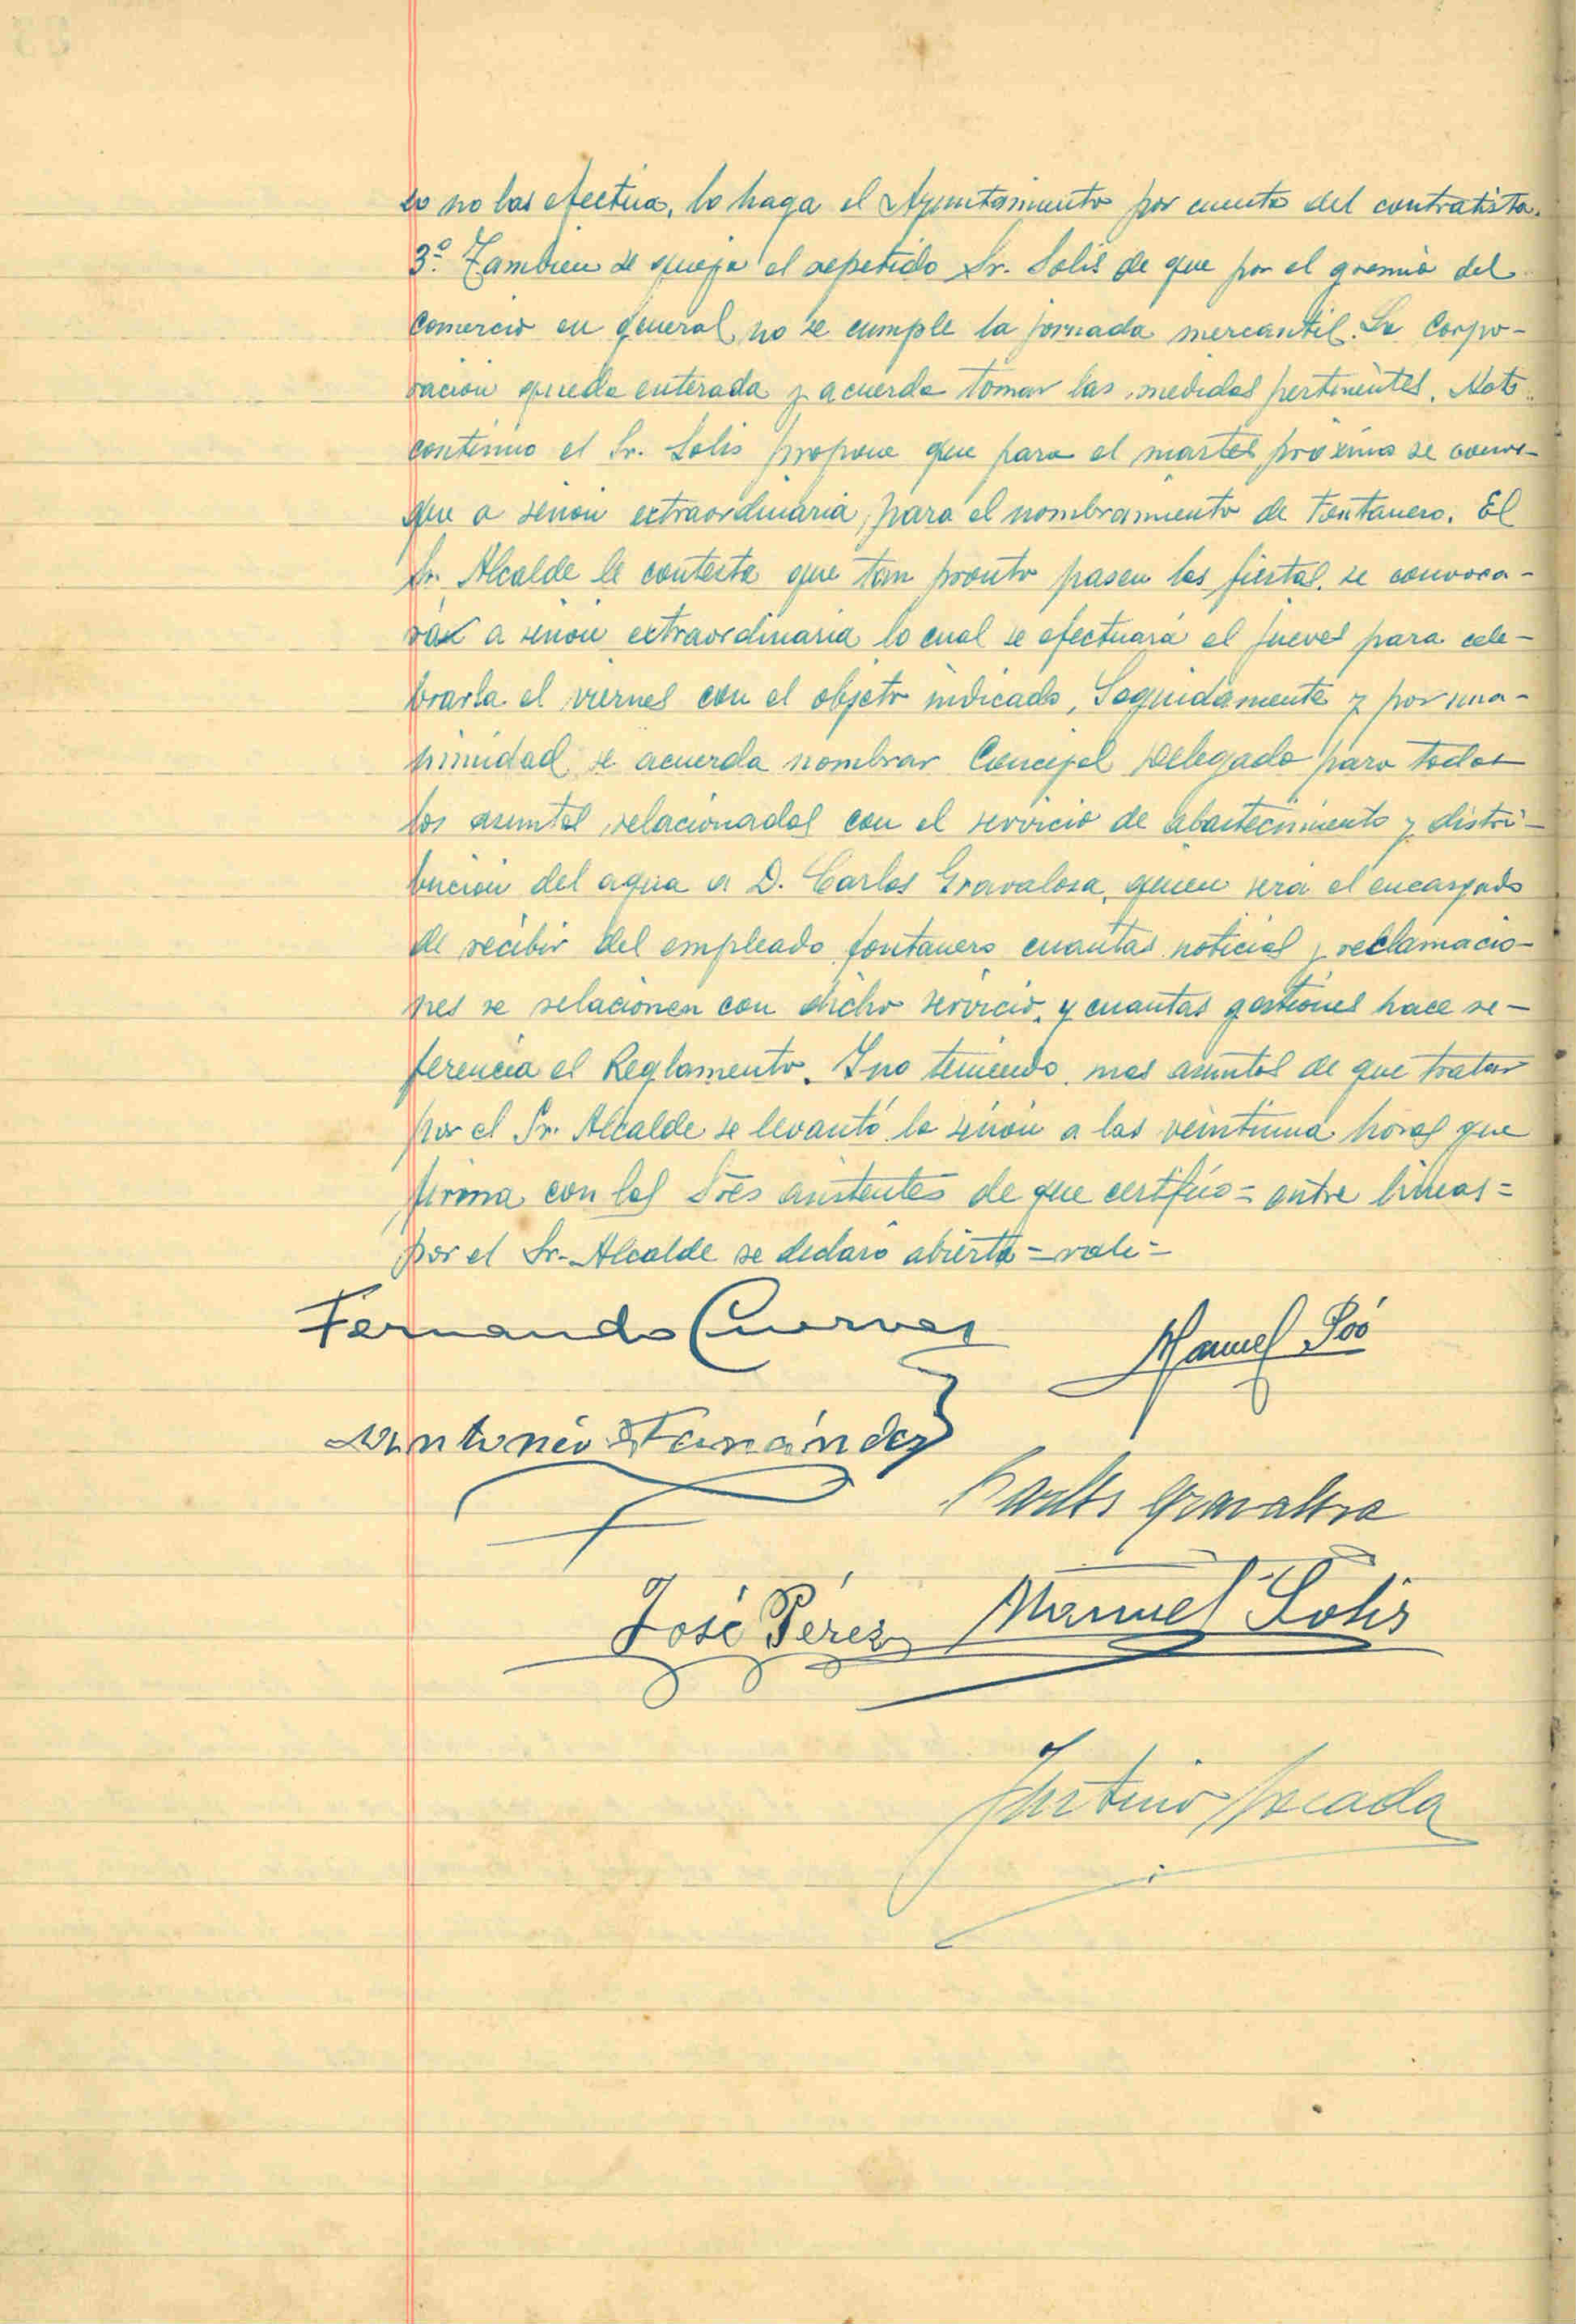 so no las efectua, lo haga el Ayuntamiento por cuenta del contratista.
3º. Tambien se queja el repetido Sr. Solis de que por el gremio del
comercio en general, no se cumple la jornada mercantil. La Corpo-
racion queda enterada y acuerda tomar las medidas pertinentes. Acto
continuo el Sr. Solis propone que para el martes próximo se convo-
que a sesion extraordinaria, para el nombramiento de Fontanero. El
Sr. Alcalde le contesta que tan pronto pasen las fiestas, se convoca-
rá a sesion extraordinaria lo cual se efectuará el jueves para cele-
brarla el viernes con el objeto indicado, Seguidamente y por una-
nimidad se acuerda nombrar Concejal Delegado para todos
los asuntos relacionados con el servicio de abastecimiento y distri-
bución del agua a D. Carlos Gravalosa, quien será el encargado
de recibir del empleado fontanero cuantas noticias y reclamacio-
nes se relacionen con dicho servicio, y cuantas gestiones hace re-
ferencia el Reglamento. Y no teniendo mas asuntos de que tratar
por el Sr. Alcalde se levantó la sesión a las veintiuna horas que
firma con los Sres asistentes de que certifico = entre lineas =
por el Sr. Alcalde se declaró abierta = vale =
Fernando Cuervas
Manuel Póo
Antonio Fernández
Carlos Gravalosa
José Pérez Manuel Solis